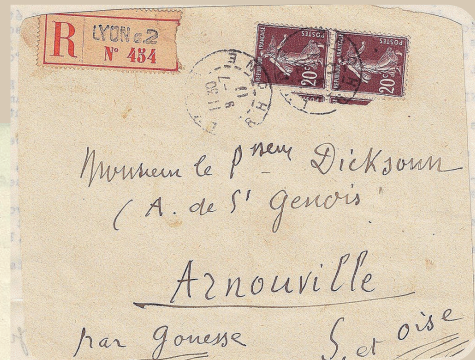 R LYON G.2
N° 454
POSTES 20c POSTES 20c
RHONE
Monsieur le Pseur Dicksonn
(A. de St Genois
Arnouville
par Gonesse S. et Oise